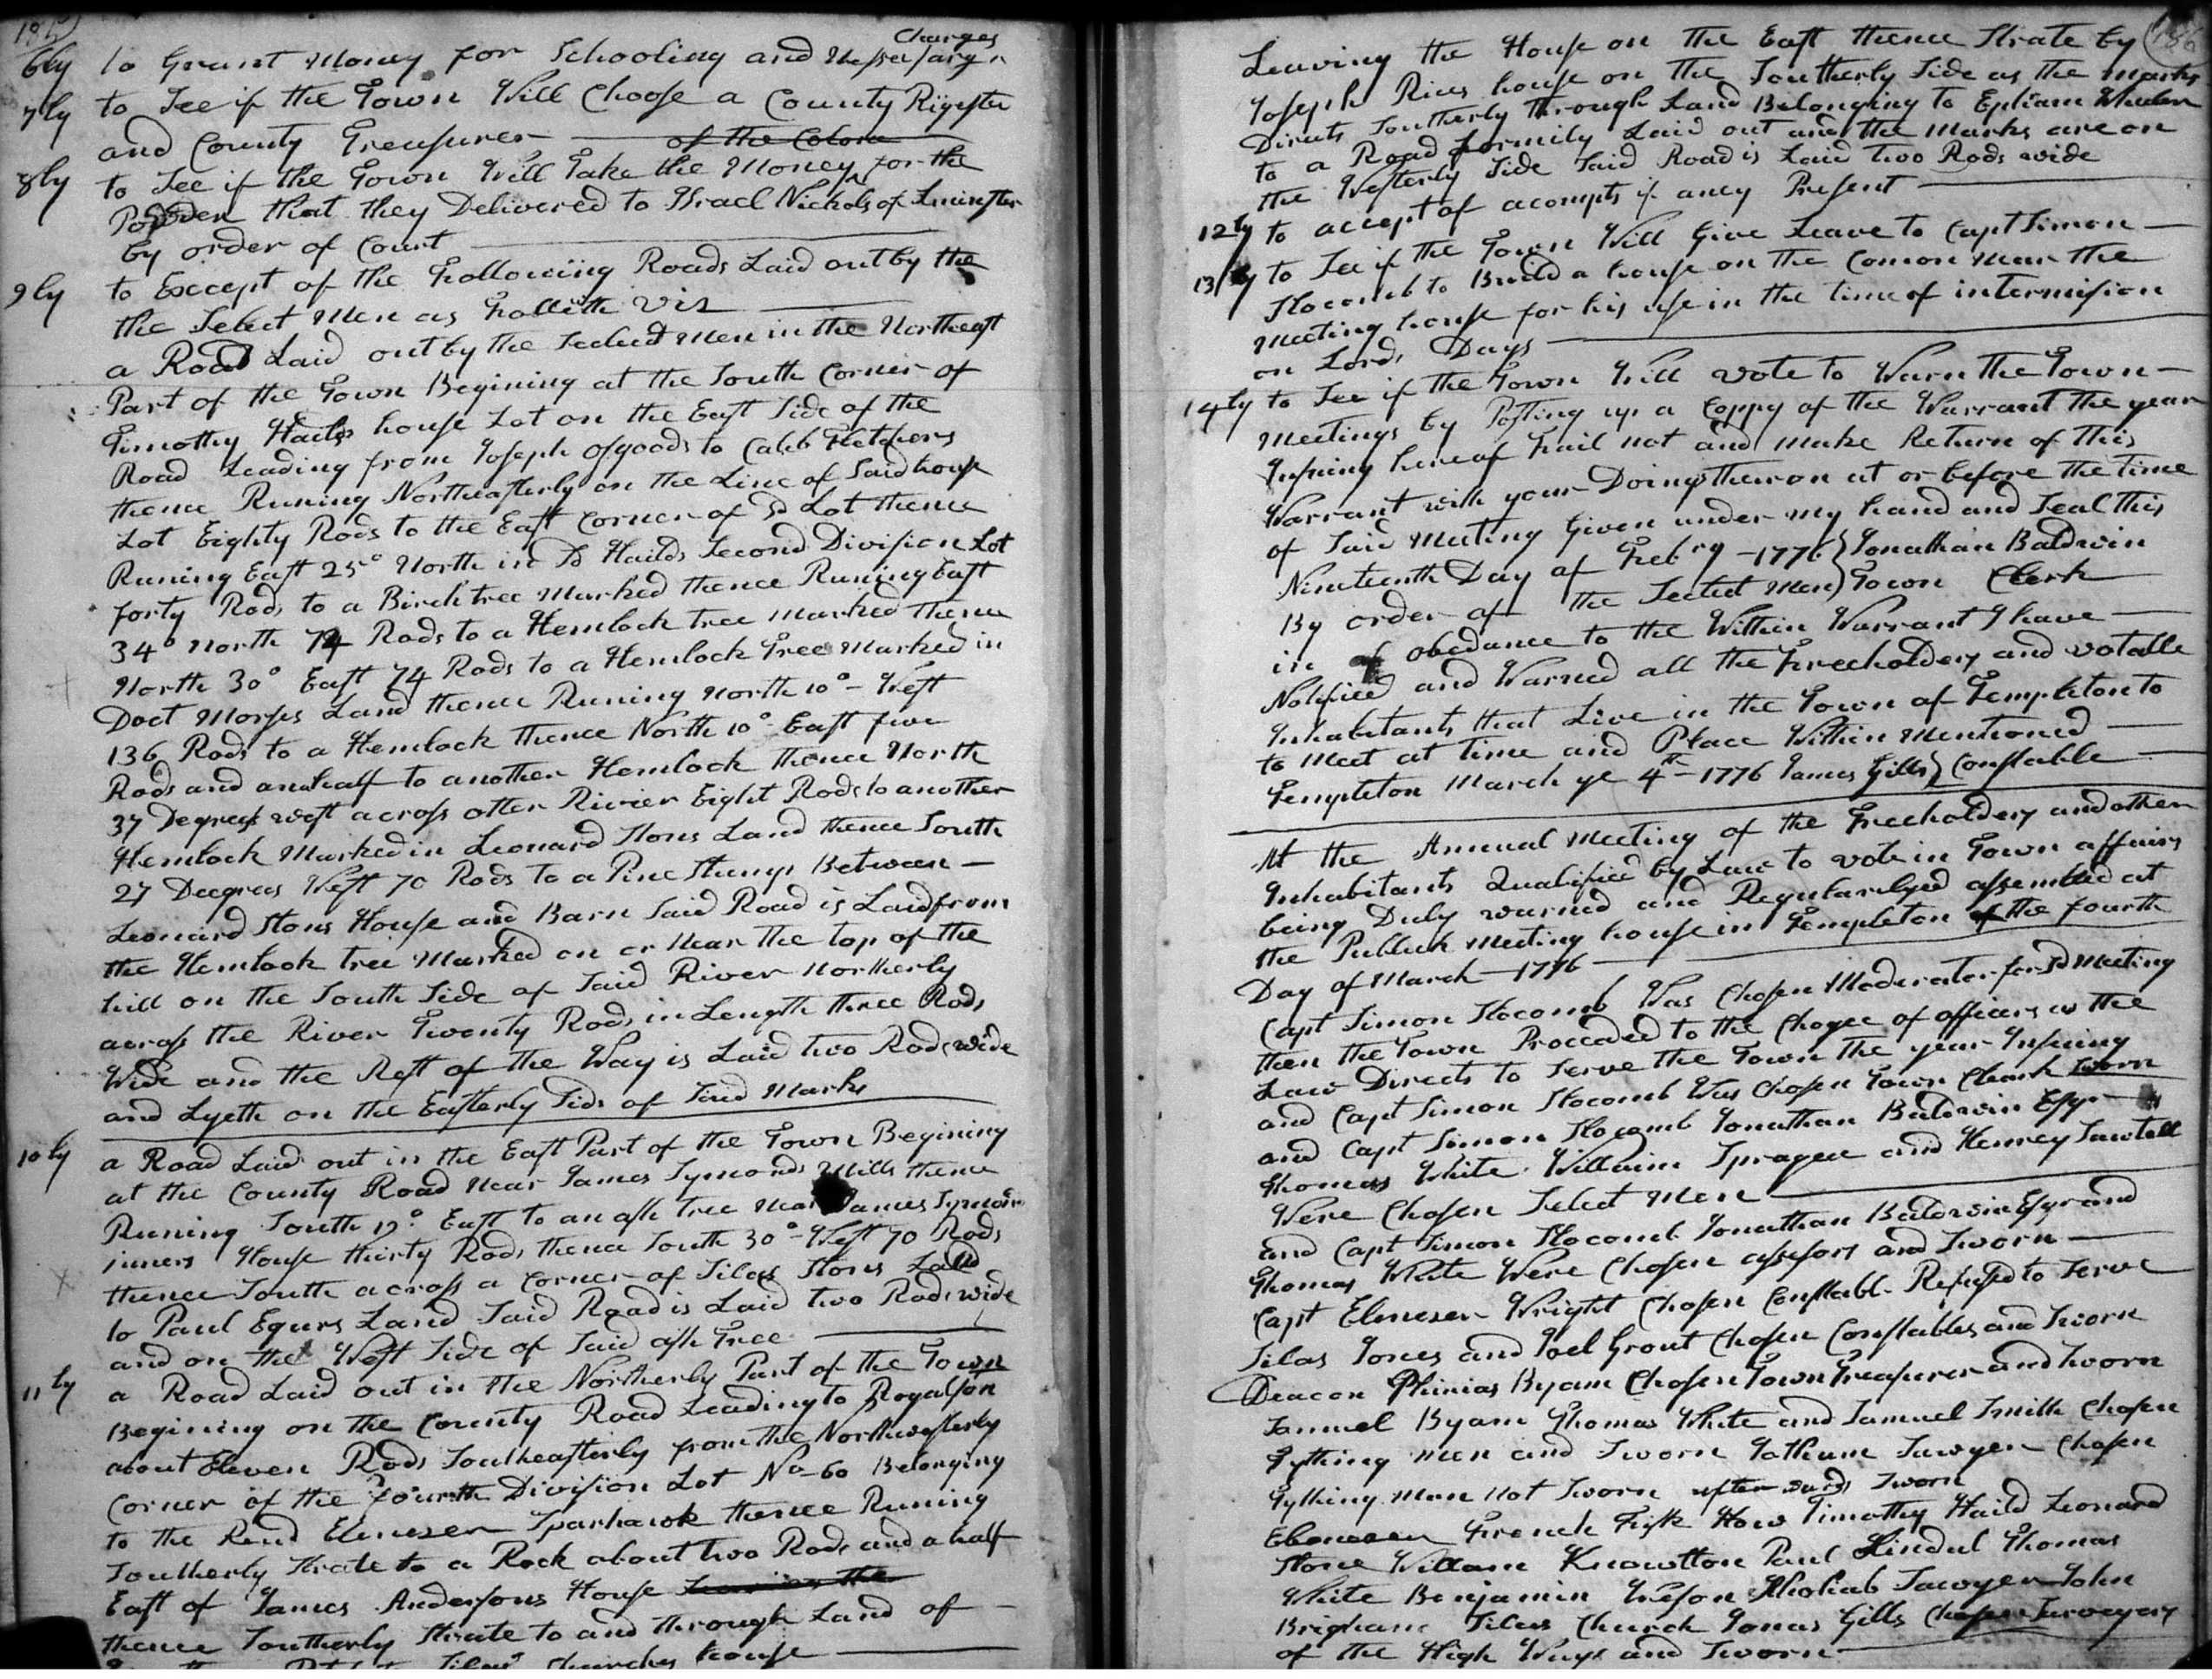 185
6ly to Grant Money for Schooling and Nessessary Charges
7ly to See if the Town Will Choose a County Rigester
and County Treasurer of the Colone
8ly to See if the Town Will Take the Money for the
Powder that they Delivered to Israel Nichols of Lminster
by order of Court
9ly to Except of the Following Roads Laid out by the
the Select Men as Folleth viz
a Road Laid out by the Seclect Men in the Northeast
Part of the Town Begining at the South Corner of
Timothy Hails house Lot on the East Side of the
Road Leading from Joseph Osgoods to Caleb Fletchers
thence Runing Northeasterly on the Line of Said house
Lot Eighty Rods to the East Corner of sd Lot thence
Runing East 25° North in sd Hailds Second Division Lot
forty Rods to a Birch tree Marked thence Runing East
34° North 74 Rods to a Hemlock tree Marked thence
North 30° East 74 Rods to a Hemlock Tree Marked in
Doct Morses Land thence Runing North 10° - West
136 Rods to a Hemlock thence North 10° East five
Rods and an half to another Hemlock thence North
37 Degrees west across otter Rivier Eight Rods to another
Hemlock Marked in Leonard Stons Land thence South
27 Deegrees West 70 Rods to a Pine Stump Between
Leonard Stons House and Barn Said Road is Laid from
the Hemlock tree Marked on or Near the top of the
hill on the South Side of Said River Northerly
across the River Twenty Rods in Length three Rods
Wide and the Rest of the Way is Laid two Rods wide
and Lyeth on the Easterly Side of Said Marks
10ly a Road Laid out in the East Part of the Town Begining
at the County Road Near James Symonds Mills thence
Runing South 12° East to an ash tree Near James Symonds
juners House thirty Rods thence South 30° - West 70 Rods
thence South across a Corner of Silas Stons Land
to Paul Egurs Land Said Road is Laid two Rods wide
and on the West Side of Said ash Tree
11ly a Road Laid out in the Northerly Part of the Town
Begining on the County Road Leading to Royalson
about Eleven Rods Southeasterly from the Northwesterly
Corner of the fourth Division Lot No - 60 Belonging
to the Revd Ebenezer Sparhawk thence Runing
Southerly Strate to a Rock about two Rods and a half
East of James Andersons House Leaving the
thence Southerly Strate to and through Land of
Silas Churches house
186
Leaving the House on the East thence Strate by
Joseph Rices house on the Southerly Side as the marks
Directs Southerly through Land Belonging to Ephram Wheler
to a Road formily Laid out and the Marks are on
the Westerly Side Said Road is Laid two Rods wide
12ly to accept of acompts if aney Present
13ly to See if the Town Will Give Leave to Capt Simon
Slocomb to Build a house on the Comon Near the
Meeting house for his use in the time of intermision
on Lords Days
14ly to See if the Town Will vote to Warn the Town
Meetings by Posting up a Coppy of the Warrant the year
Insuing hereof Fail not and Make Return of this
Warrant with your Doings theiron at or before the time
of Said Meeting Given under my hand and Seal this
Nineteenth Day of Febry - 1776 } Jonathan Baldwin
By order of the Seclect Men } Town Clerk
in obedance to the Within Warrant I have
Notified and Warned all the Freeholders and votable
Inhabitants that Live in the Town of Templeton to
to Meet at time and Place Within Mentioned
Templeton March ye 4th - 1776 James Gills } Constable
At the Annual Meeting of the Freeholders and other
Inhabitants Qualified by Law to vote in Town affairs
being Duly warned and Regularlyed assembled at
the Publick Meeting house in Templeton the fourth
Day of March - 1776
Capt Simon Slocomb Was Chosen Moderator for sd Meeting
then the Town Proceded to the Choyce of officers as the
Law Directs to Serve the Town the year Insuing
and Capt Simon Slocomb Was Chosen Town Cleark Sworn
and Capt Simon Slocomb Jonathan Baldwin Esqr
Thomas White William Sprague and Henrey Sawtell
Were Chosen Select Men
and Capt Simon Slocomb Jonathan Baldwin Esqr and
Thomas White Were Chosen assesors and Sworn
Capt Ebenezer Wright Chosen Constabl- Refused to Serve
Silas Jones and Joel Grout Chosen Constables and Sworn
Deacon Phinias Byam Chosen Town Treasurer and Sworn
Samuel Byam Thomas White and Samuel Smith Chosen
Tything men and Sworn Jotham Sawyer Chosen
Tything man not Sworn after wards Sworn
Ebenezer French Fisk How Timothy Haild Leonard
Stone William Knowlton Paul Kindal Thomas
White Benjamin Wilson Aholiab Sawyer John
Brigham Silas Church Jonas Gills Chosen Surveyers
of the High Ways and Sworn